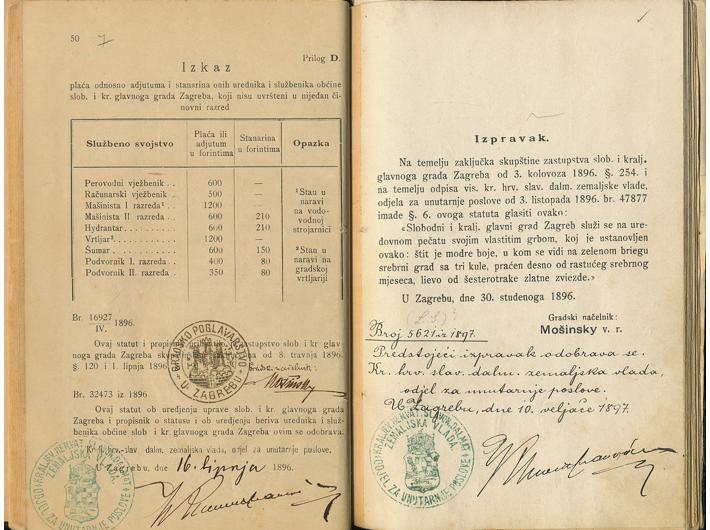 50 7
Prilog D.
Izkaz
plaća odnosno adjutuma i stanarina onih urednika i službenika obćine
slob. i kr. glavnoga grada Zagreba, koji nisu uvršteni u nijedan či-
novni razred
Službeno svojstvo | Plaća ili adjutum u forintima | Stanarina u forintima | Opazka
Perovodni vježbenik . . 600 —
Računarski vježbenik . 500 —
Mašinista I razreda¹ . . 1200 —
Mašinista II razreda . . 600 210
Hydrantar . . . . . 600 210
Vrtljar² . . . . . 1200 —
Šumar . . . . . 600 150
Podvornik I. razreda . . 400 80
Podvornik II. razreda . . 350 80
¹Stan u
naravi
na vodo-
vodnoj
strojarnici
²Stan u
naravi na
gradskoj
vrtljariji
Br. 16927
IV. 1896.
Ovaj statut i propisnik zastupstvo slob. i kr glav
noga grada Zagreba na od 8. travnja 1896.
§. 120 i 1. lipnja 1896.
GRADSKO POGLAVARSTVO
U ZAGREBU
Mošinsky
Br. 32473 iz 1896
Ovaj statut ob uredjenju uprave slob. i kr. glavnoga grada
Zagreba i propisnik o statusu i ob uredjenju beriva urednika i služ-
benika obćine slob. i kr glavnoga grada Zagreba ovim se odobrava.
Kr. hrv. slav. dalm. zemaljska vlada, odjel za unutarnje poslove.
U Zagrebu, dne 16. lipnja 1896.
ZEMALJSKA VLADA.
ODJEL ZA UNUTARNJE POSLOVE
Izpravak.
Na temelju zaključka skupštine zastupstva slob. i kralj.
glavnoga grada Zagreba od 3. kolovoza 1896. §. 254. i
na temelju odpisa vis. kr. hrv. slav. dalm. zemaljske vlade,
odjela za unutarnje poslove od 3. listopada 1896. br. 47877
imade §. 6. ovoga statuta glasiti ovako:
«Slobodni i kralj. glavni grad Zagreb služi se na ure-
dovnom pečatu svojim vlastitim grbom, koj je ustanovljen
ovako: štit je modre boje, u kom se vidi na zelenom briegu
srebrni grad sa tri kule, praćen desno od rastućeg srebrnog
mjeseca, lievo od šesterotrake zlatne zviezde.»
U Zagrebu, dne 30. studenoga 1896.
Gradski načelnik:
Mošinsky v. r.
Broj 5621 iz 1897.
Predstojeći izpravak odobrava se.
Kr. hrv. slav. dalm. zemaljska vlada,
odjel za unutarnje poslove.
U Zagrebu, dne 10. veljače 1897.
ZEMALJSKA VLADA.
ODJEL ZA UNUTARNJE POSLOVE